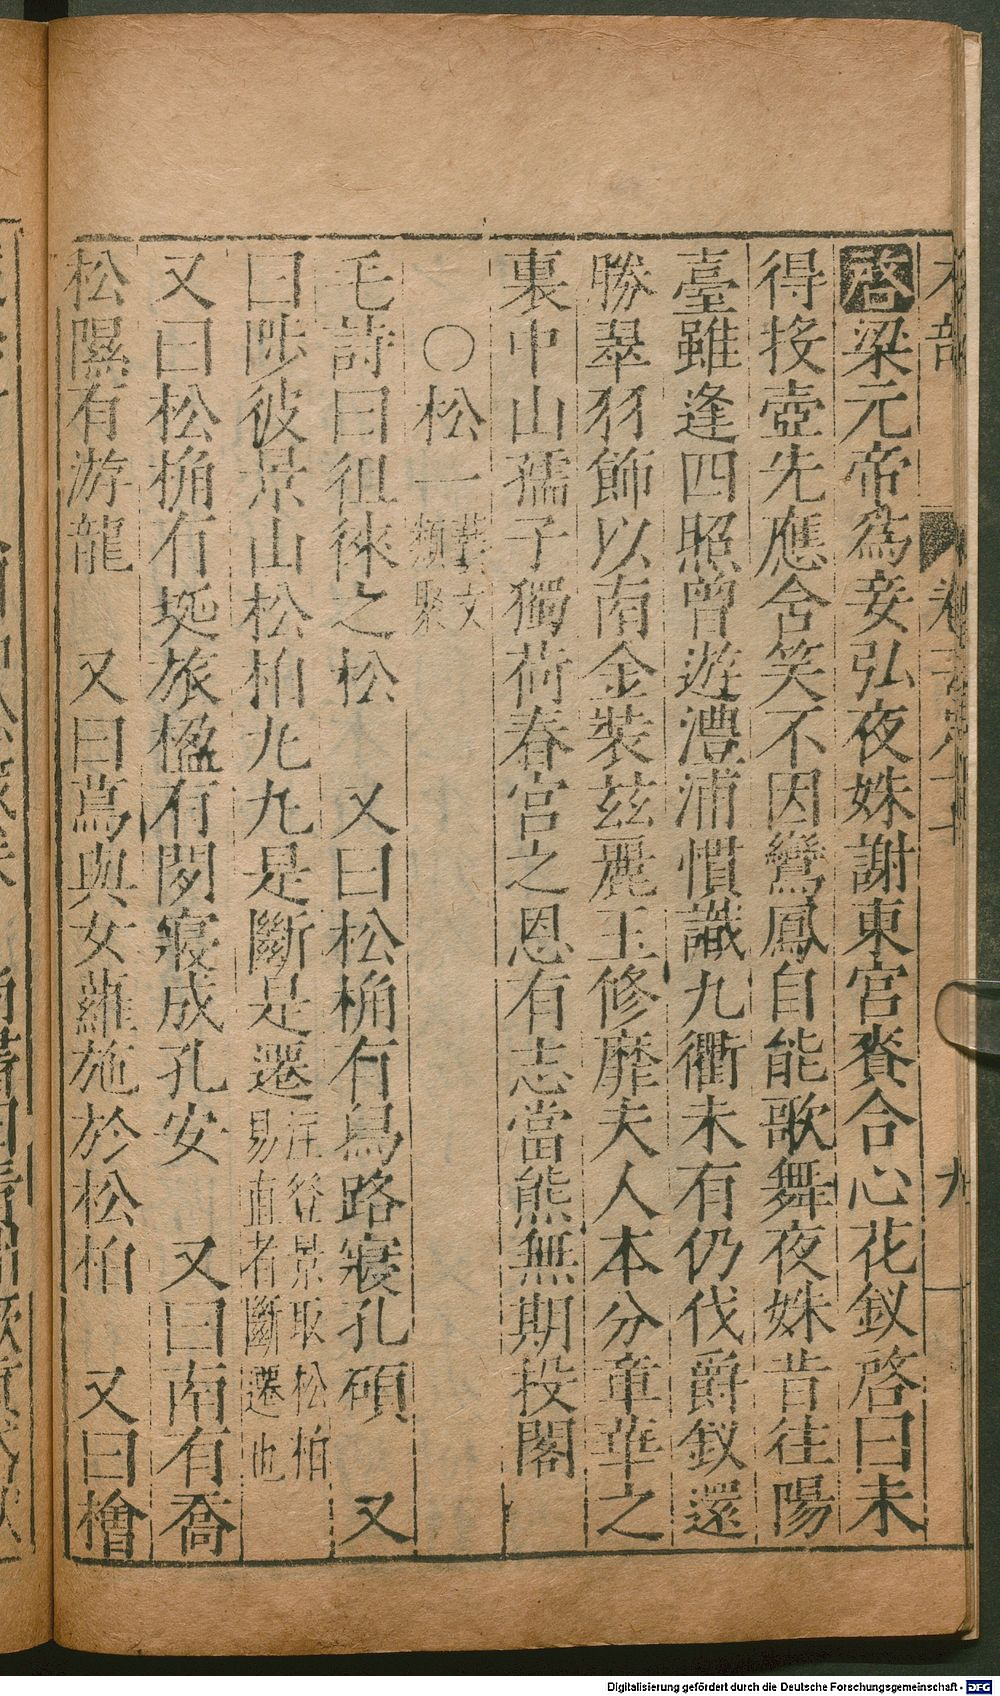 木部
九
啓梁元帝為妾弘夜姝謝東宮賚合心花釵啓曰未
得投壺先應含笑不因鸞鳳自能歌舞夜姝昔往陽
臺雖逢四照曾遊澧浦慣識九衢未有仍伐爵釵還
勝翠羽飾以南金裝茲麗玉修靡夫人本分章華之
裏中山孺子獨荷春宮之恩有志當熊無期投閣
○松一藝文類聚
毛詩曰徂徠之松　又曰松桷有舄路寢孔碩　又
曰陟彼景山松栢丸丸是斷是遷注登景取松栢易直者斷遷也
又曰松桷有梴旅楹有閑寢成孔安　又曰南有喬
松隰有游龍　又曰蔦與女蘿施於松栢　又曰檜
Digitalisierung gefördert durch die Deutsche Forschungsgemeinschaft - DFG